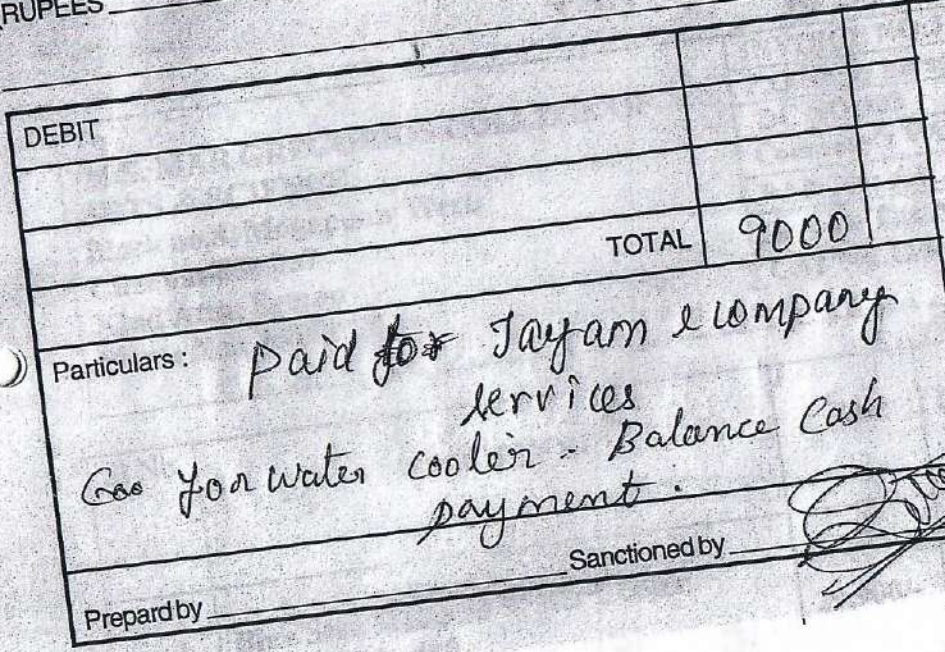 RUPEES
DEBIT
TOTAL 9000
Particulars : Paid for Jayam & company
services
Gas for water cooler - Balance Cash
payment.
Sanctioned by
Prepard by